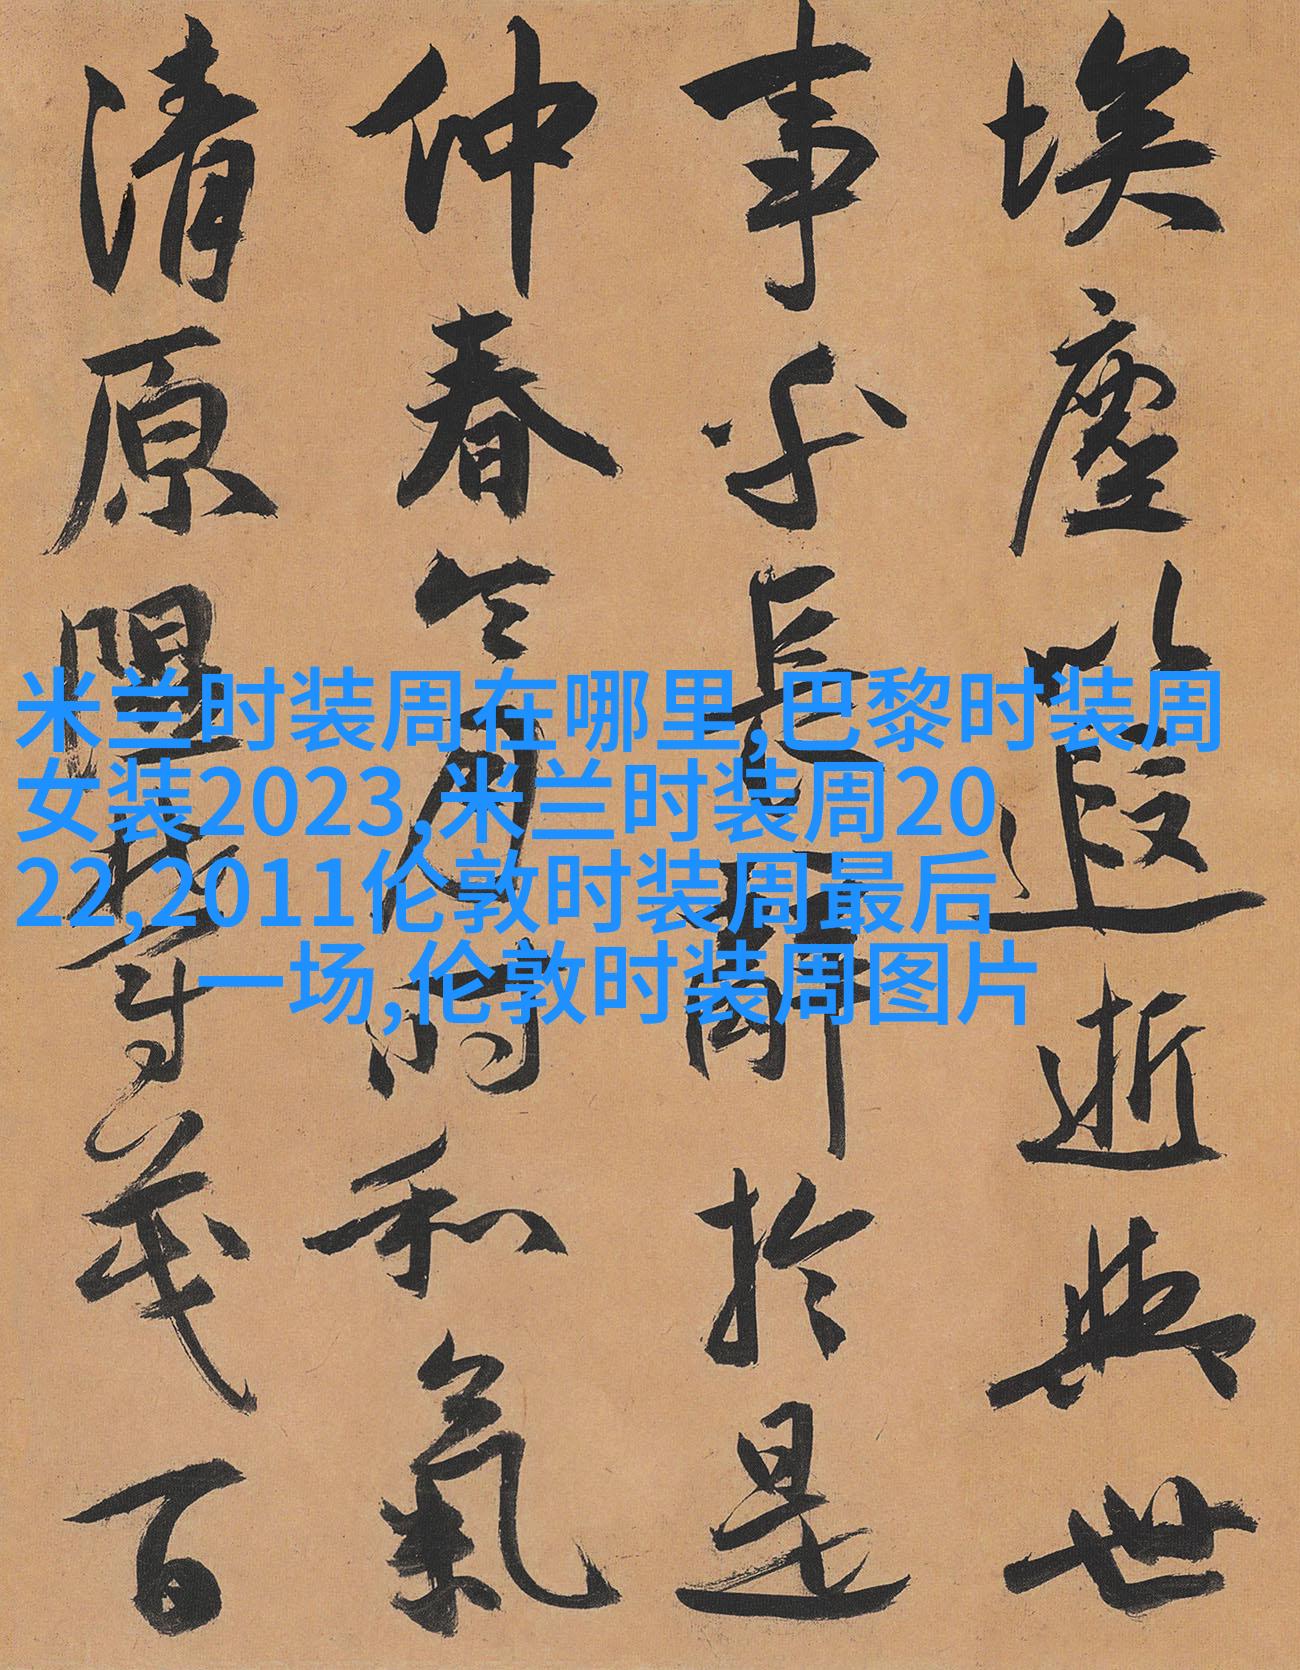 埃塵以遐逝與世
事乎長辭於是
仲春令月時和氣
清原隰鬱茂百
米兰时装周在哪里,巴黎时装周
女装2023,米兰时装周20
22,2011伦敦时装周最后
一场,伦敦时装周图片